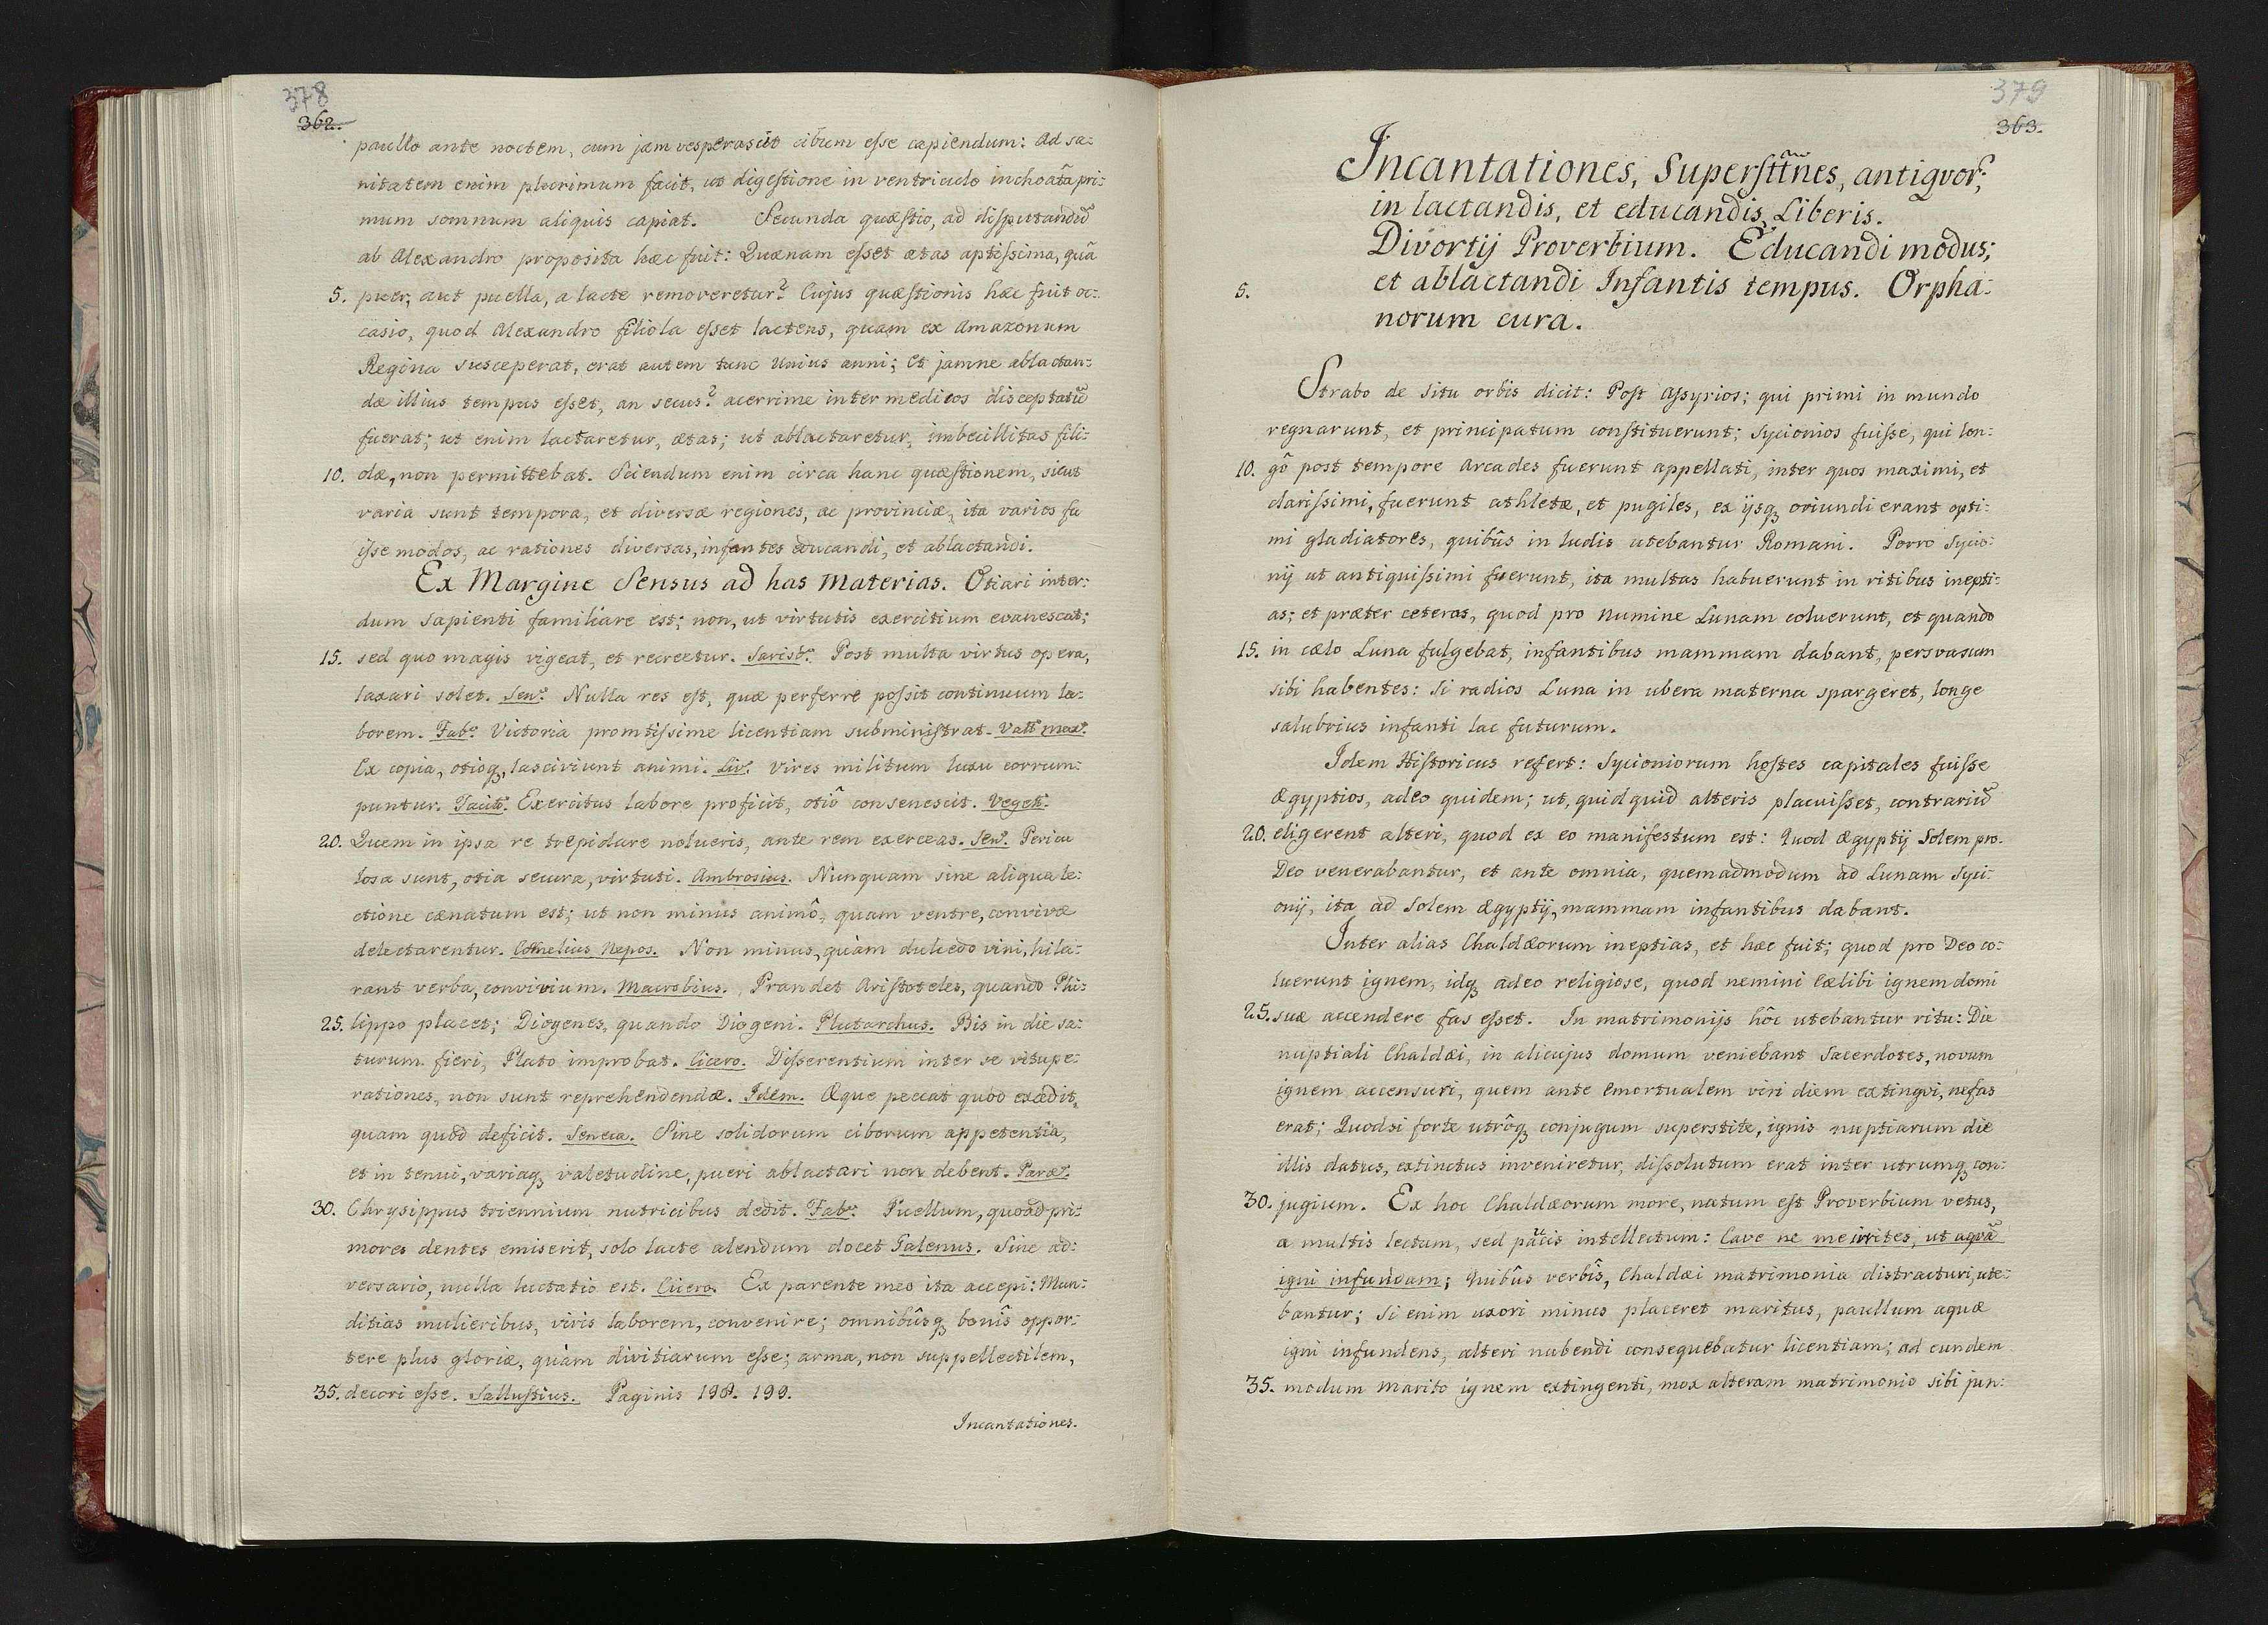 378
362.
paullo ante noctem, cum jam vesperascit cibum eſse capiendum: Ad sa:
nitatem enim plurimum facit, ut digeſtione in ventriculo inchoatâ pri:
mum somnum aliquis capiat. Secunda quæſtio, ad diſputandũ
ab Alexandro proposita hæc fuit: Quænam eſset ætas aptiſsima, quâ
5. puer, aut puella, a lacte removeretur? Cujus quæſtionis hæc fuit oc:
casio, quod Alexandro filiola eſset lactens, quam ex Amazonum
Regina susceperat, erat autem tunc unius anni; Et jamne ablactan:
dæ illius tempus eſset, an secus? acerrime inter medicos disceptatũ
fuerat; ut enim lactaretur, ætas; ut ablactaretur, imbecillitas fili:
10. olæ, non permittebat. Sciendum enim circa hanc quæſtionem, sicut
varia sunt tempora, et diversæ regiones, ac provinciæ, ita varios fu
iſse modos, ac rationes diversas, infantes educandi, et ablactandi.
Ex Margine Sensus ad has Materias. Otiari inter:
dum sapienti familiare est; non, ut virtutis exercitium evanescat;
15. sed quo magis vigeat, et recreetur. Sarisb. Post multa virtus opera,
laxari solet. Sen. Nulla res eſt, quæ perferre poſsit continuum la:
borem. Fab. Victoria promtiſsime licentiam subminiſtrat. Vall max.
Ex copia, otioq, lasciviunt animi. Liv. Vires militum luxu corrum:
puntur. Tacit. Exercitus labore proficit, otiô consenescit. Veget.
20. Quem in ipsa re trepidare nolueris, ante rem exerceas. Sen. Pericu
losa sunt, otia secura, virtuti. Ambrosius. Nunquam sine aliqua le:
ctione cænatum est; ut non minus animô, quam ventre, convivæ
delectarentur. Cornelius Nepos. Non minus, quàm dulcedo vini, hila:
rant verba, convivium. Macrobius. Prandet Ariſtoteles, quando Phi:
25. lippo placet; Diogenes, quando Diogeni. Plutarchus. Bis in die sa:
turum fieri, Plato improbat. Cicero. Diſserentium inter se vitupe:
rationes, non sunt reprehendendæ. Idem. Æque peccat quod excedit,
quam quod deficit. Seneca. Sine solidorum ciborum appetentia,
et in tenui, variaq, valetudine, pueri ablactari non debent. Paræ.
30. Chrysippus triennium nutricibus dedit. Fab. Puellum, quoad pri:
mores dentes emiserit, solo lacte alendum docet Galenus. Sine ad:
versario, nulla luctatio est. Cicero. Ex parente meo ita accepi: Mun:
ditias mulieribus, viris laborem, convenire; omnibûsq bonîs oppor:
tere plus gloriæ, quàm divitiarum eſse; arma, non suppellectilem,
35. decori eſse. Salluſtius. Paginis 198. 199.
Incantationes.
379
363.
Incantationes, Superſttnes, antiqvor;
in lactandis, et educandis Liberis.
Divortij Proverbium. Educandi modus;
5. et ablactandi Infantis tempus. Orpha:
norum cura.
Strabo de situ orbis dicit: Poſt Aſsyrios; qui primi in mundo
regnarunt, et principatum conſtituerunt; Sycionios fuiſse, qui lon:
10. gô post tempore Arcades fuerunt appellati, inter quos maximi, et
clariſsimi, fuerunt athletæ, et pugiles, ex ijsq oriundi erant opti:
mi gladiatores, quibûs in ludis utebantur Romani. Porro Sycio:
nij ut antiquiſsimi fuerunt, ita multas habuerunt in ritibus inepti:
as; et præter ceteras, quod pro Numine Lunam coluerunt, et quando
15. in cælo Luna fulgebat, infantibus mammam dabant, persvasum
sibi habentes: si radios Luna in ubera materna spargeret, longe
salubrius infanti lac futurum.
Idem Hiſtoricus refert: Sycioniorum hoſtes capitales fuiſse
Ægyptios, adeo quidem; ut, quidquid alteris placuiſset, contrariũ
20. eligerent alteri, quod ex eo manifestum est: Quod Ægyptij Solem pro
Deo venerabantur, et ante omnia, quemadmodum ad Lunam Syci:
onij, ita ad Solem Ægyptij, mammam infantibus dabant.
Inter alias Chaldæorum ineptias, et hæc fuit; quod pro Deo co:
luerunt ignem, idq adeo religiose, quod nemini Cælibi ignem domi
25. suæ accendere fas eſset. In matrimonijs hôc utebantur ritu: Die
nuptiali Chaldæi, in alicujus domum veniebant Sacerdotes, novum
ignem accensuri, quem ante emortualem viri diem extingvi, nefas
erat; Quodsi forte utrôq conjugum superstite, ignis nuptiarum die
illis datus, extinctus inveniretur, diſsolutum erat inter utrumq con:
30. jugium. Ex hoc Chaldæorum more, natum eſt Proverbium vetus,
a multis lectum, sed paucis intellectum: Cave ne me irrites, ut aqvã
igni infundam; Quibûs verbîs, Chaldæi matrimonia distracturi, ute:
bantur; si enim uxori minus placeret maritus, paullum aquæ
igni infundens, alteri nubendi consequebatur licentiam; ad eundem
35. modum Marito ignem extingenti, mox alteram matrimonio sibi jun: